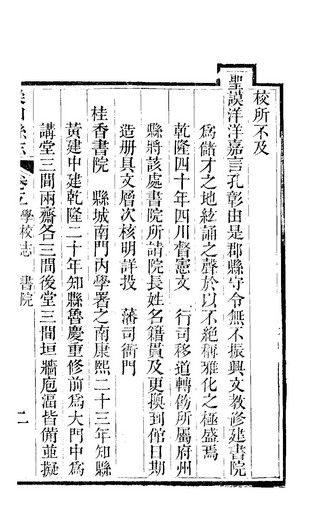 校所不及
聖謨洋洋嘉言孔彰由是郡縣守令無不振興文教修建書院
為儲才之地絃誦之聲於以不絶稱雅化之極盛焉
乾隆四十年四川督憲文　行司移道轉飭所屬府州
縣將該處書院所請院長姓名籍貫及更換到館日期
造册具文層次核明詳投　藩司衙門
桂香書院　縣城南門内學署之南康熙二十三年知縣
黃建中建乾隆二十年知縣魯慶重修前為大門中為
講堂三間兩齋各三間後堂三間垣牆庖湢皆備並擬
縣志　學校志　書院　二